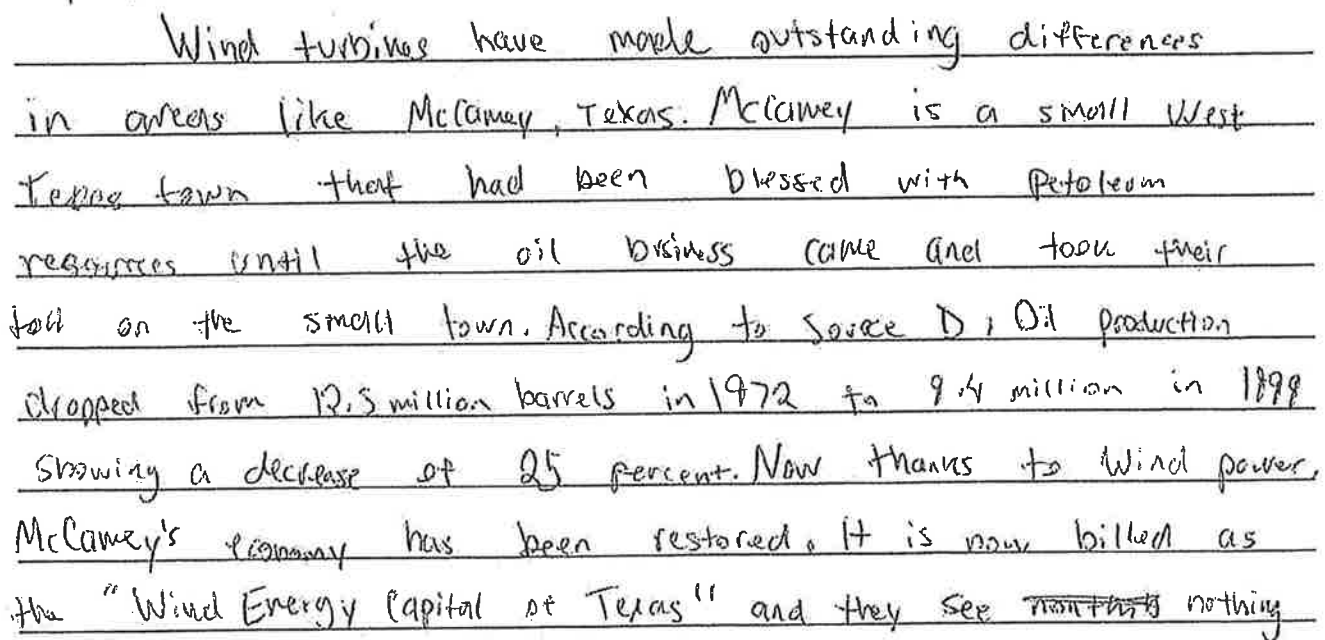 Wind turbines have made outstanding differences
in areas like McCamey, Texas. McCamey is a small West
Texas town that had been blessed with Petoleum
resources until the oil brsiness came and toon their
toll on the small town. According to Source D, Oil production
dropped from 12.5 million barrels in 1972 to 9.4 million in 1999
showing a decrease of 25 percent. Now thanks to Wind power,
McCamey's economy has been restored. It is now billed as
the "Wind Energy Capital of Texas" and they see nothing